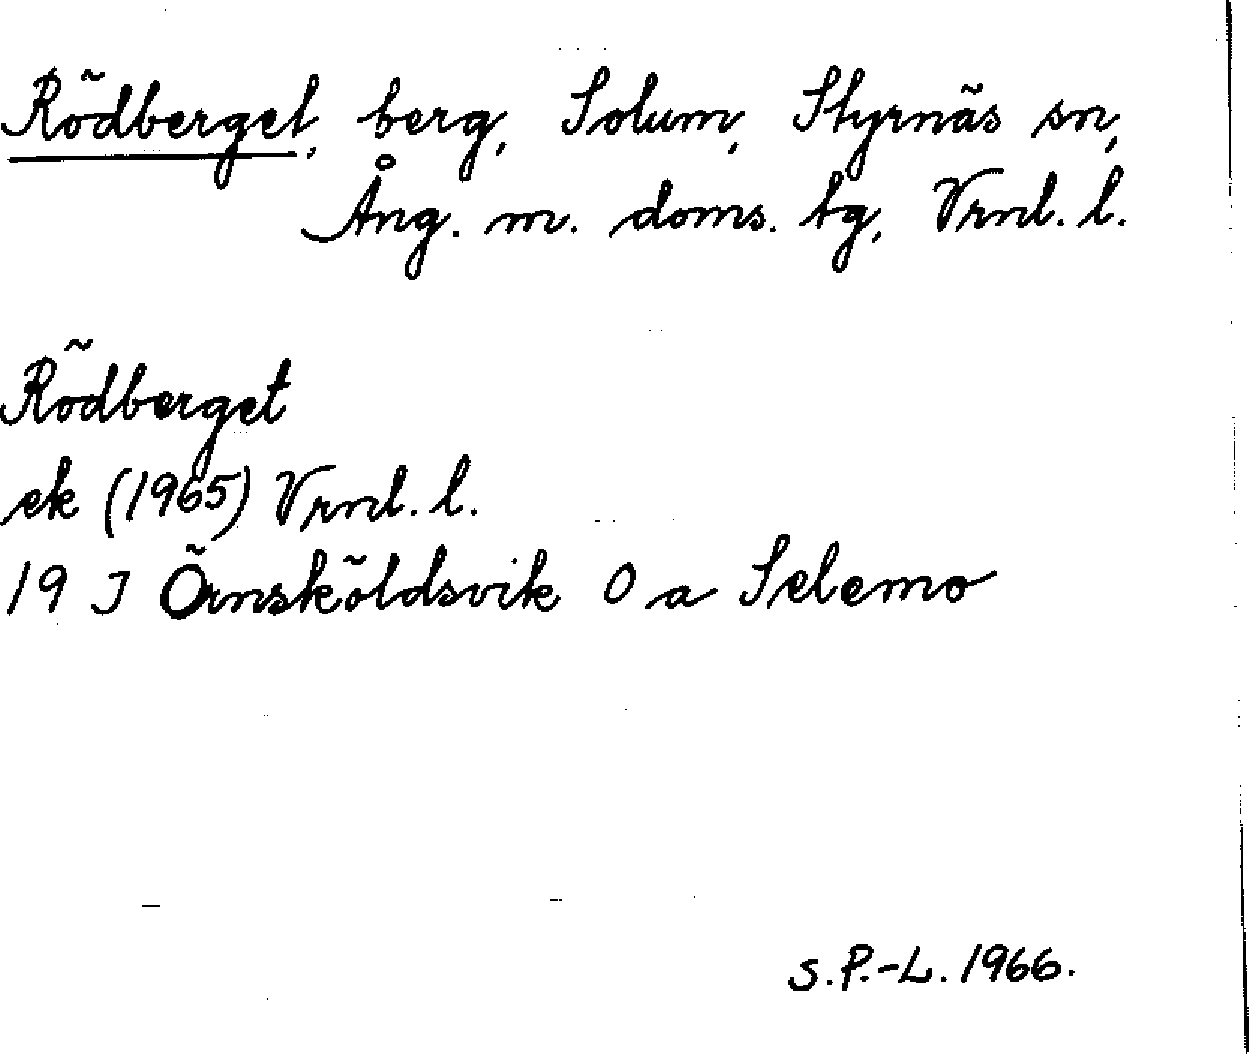 Rödberget, berg, Solum, Styrnäs sn,
Ång. m. doms. tg, Vrnl. l.
Rödberget
ek (1965) Vrnl. l.
19 J Örnsköldsvik 0 a Selemo
S.P.-L. 1966.